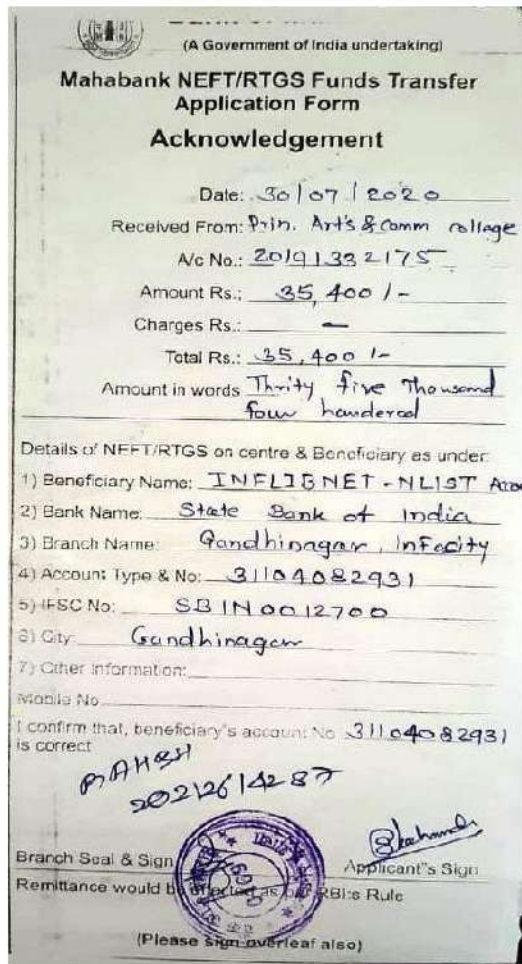 (A Government of India undertaking)
Mahabank NEFT/RTGS Funds Transfer
Application Form
Acknowledgement
Date: 30/07/2020
Received From: Prin. Art's & Comm collage
A/c No.: 20191332175
Amount Rs.: 35,400/-
Charges Rs.: —
Total Rs.: 35,400/-
Amount in words Thrity five Thousand
four handered
Details of NEFT/RTGS on centre & Beneficiary as under:
1) Beneficiary Name: INFLIBNET-NLIST
2) Bank Name: State Bank of India
3) Branch Name: Gandhinagar, Infocity
4) Account Type & No: 31104082931
5) IFSC No: SBIN0012700
6) City: Gandhinagar
7) Other Information:
Mobile No
I confirm that, beneficiary's account No 31104082931
is correct
Branch Seal & Sign Applicant"s Sign
Remittance would be effected as per RBI:s Rule
(Please sign overleaf also)